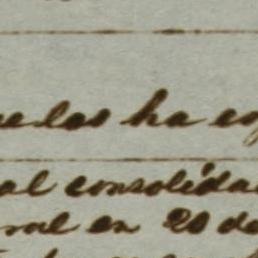 elas ha co
al consolida
ral en 20 de